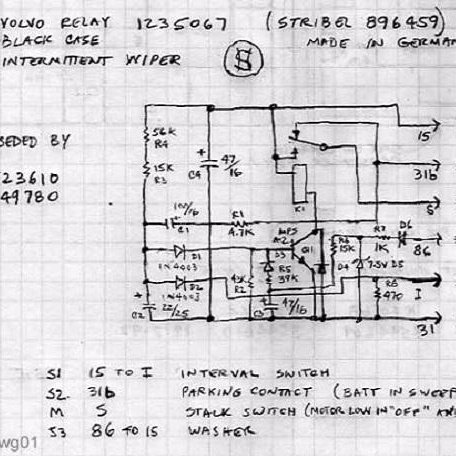 VOLVO RELAY 1235067 (STRIBEL 896459)
BLACK CASE MADE IN GERMAN
INTERMITTENT WIPER
S
SEDED BY
23610
49780
56K
R4
15K
R3
+
47/16
C4
K1
15
31b
S
100/16
C1
R1
4.7K
MPS
A12
Q1
R6
15K
R7
1K
D6
86
D1
1N4003
D3
R5
39K
D4
7.5V D5
R2
D2
1N4003
R8
470
I
+
22/25
C2
+
47/16
C3
31
S1 15 TO I INTERVAL SWITCH
S2 31b PARKING CONTACT (BATT IN SWEEP
M S STALK SWITCH (MOTOR LOW IN "OFF" AN
S3 86 TO 15 WASHER
wg01